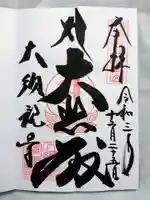 奉拝
令和三年
十二月二十五日
大悲殿
大須観音